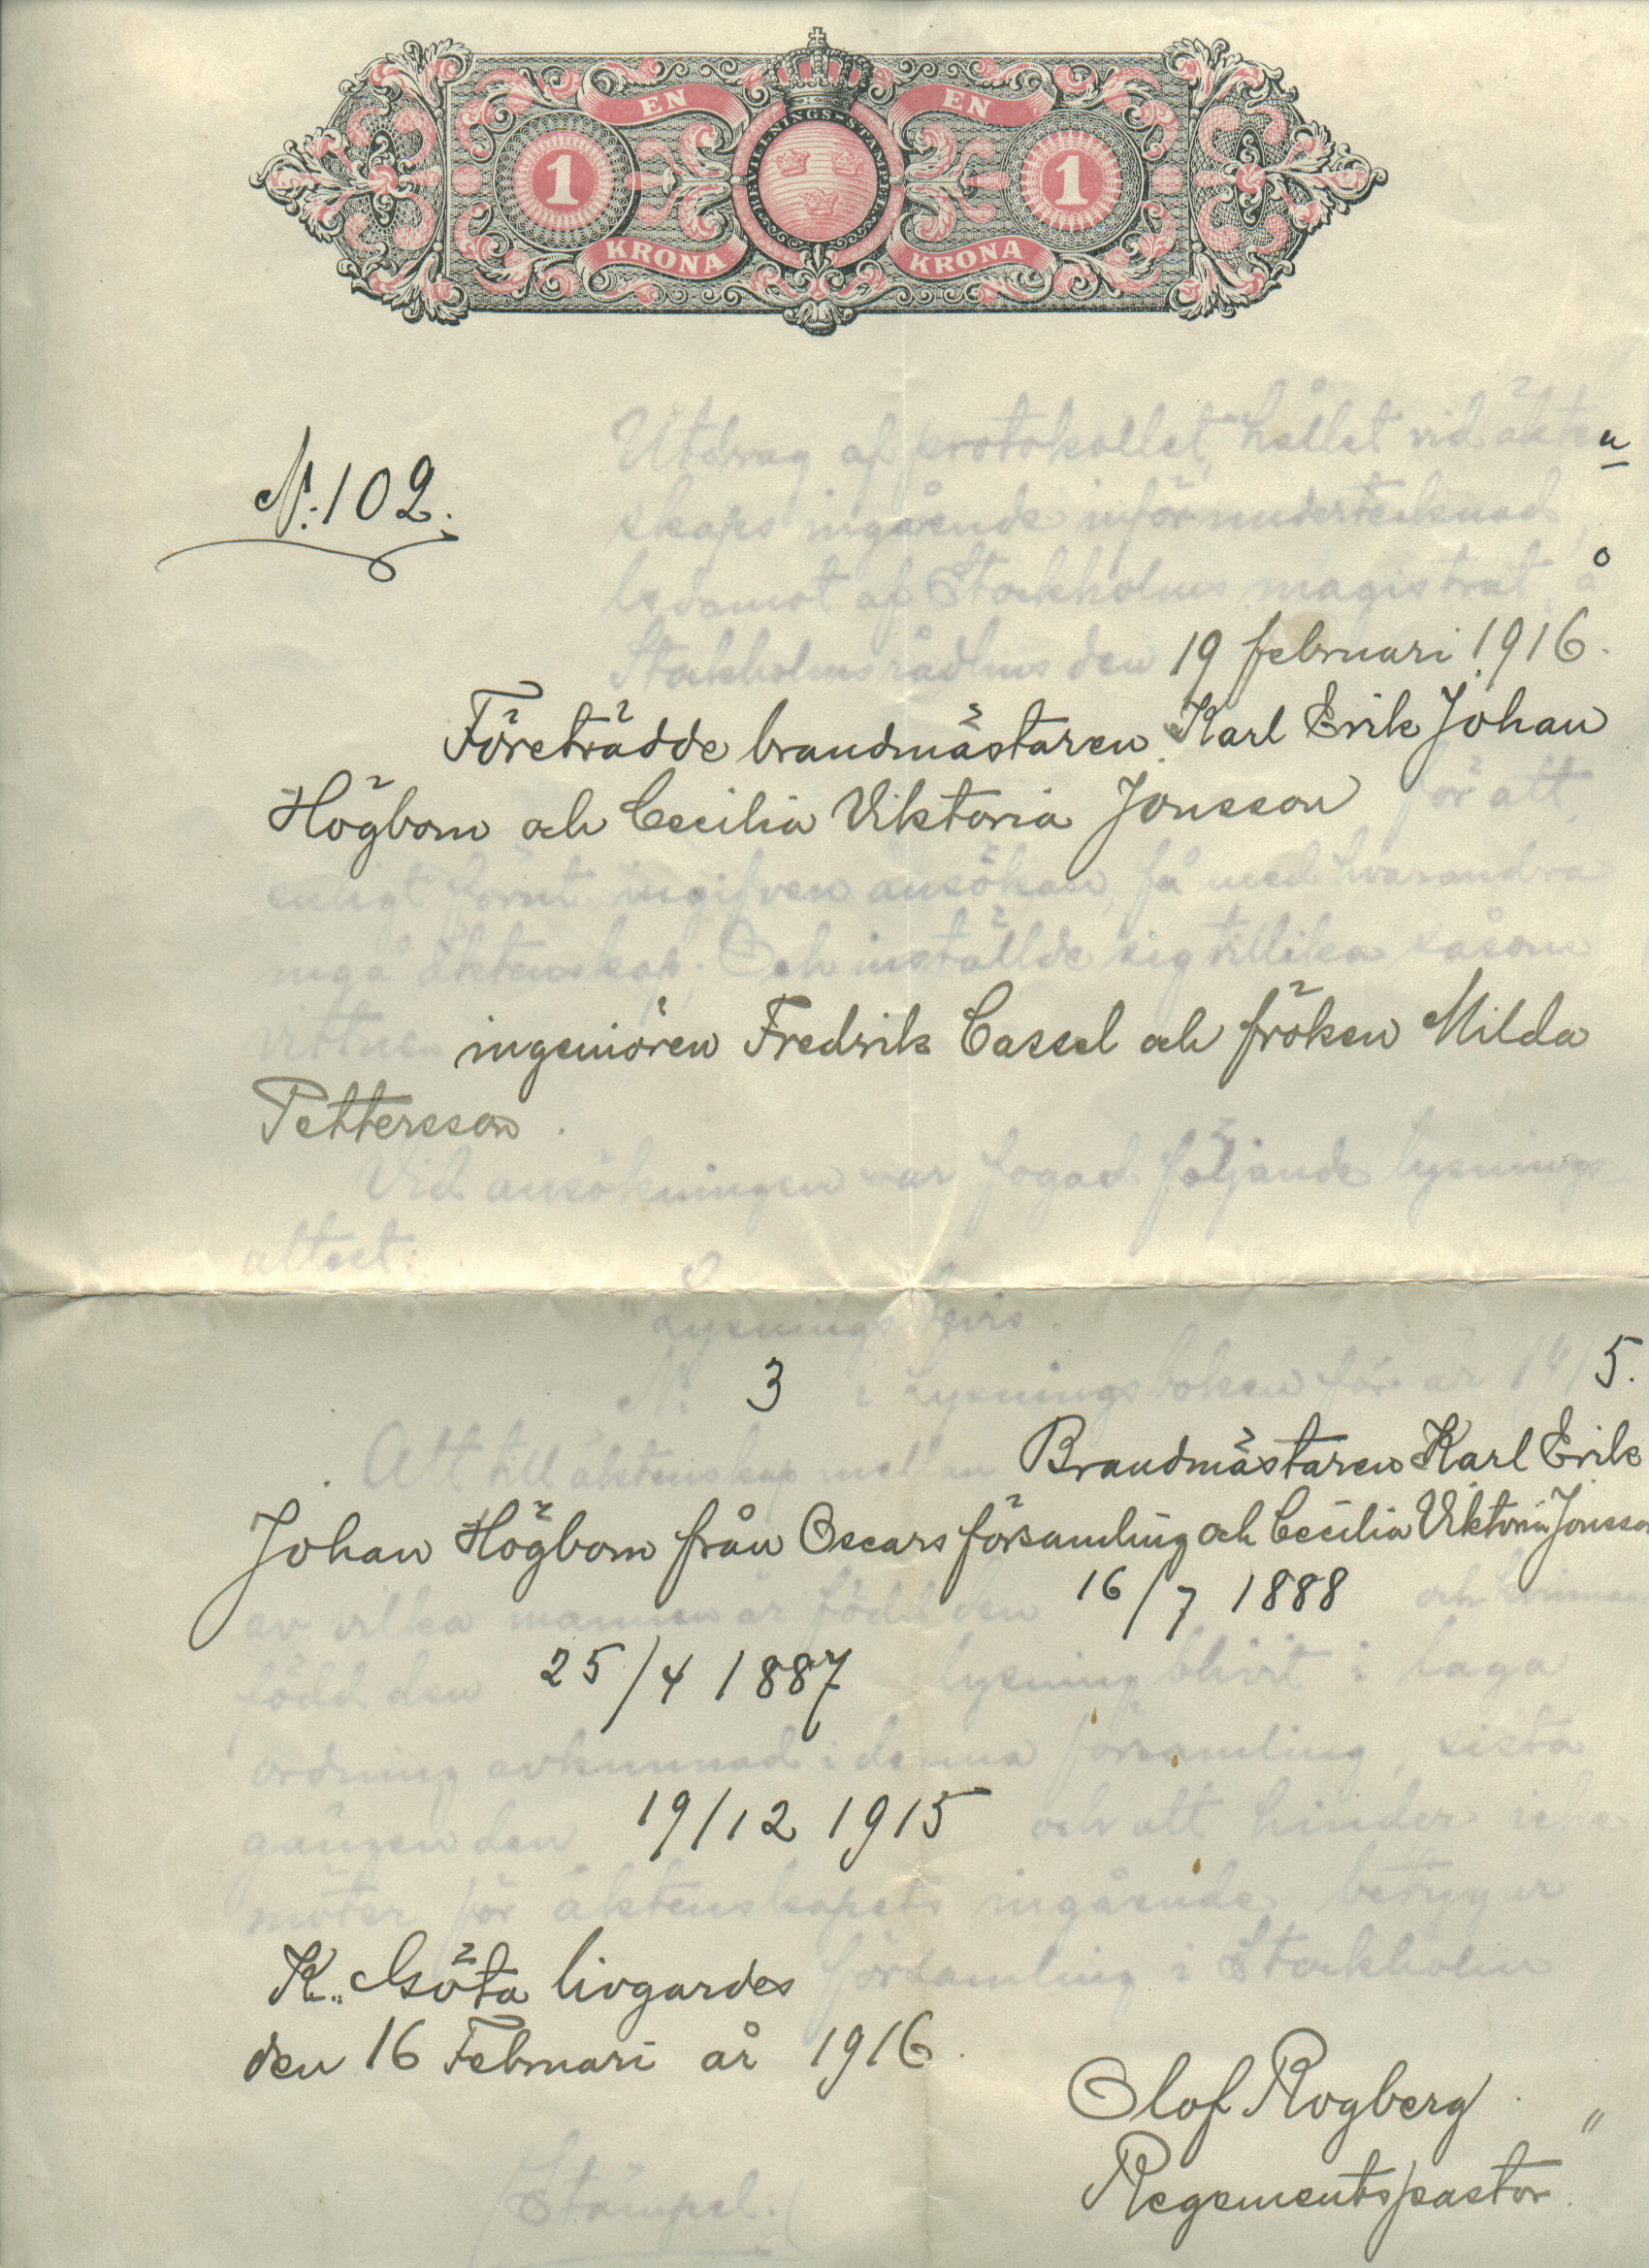 EN EN
BEVILLNINGS-STÄMPEL
1 1
KRONA KRONA
N:102.
Utdrag af protokollet, hållet vid äkten
skaps ingående inför undertecknad,
ledamot af Stockholms magistrat, å
Stockholms rådhus den 19 februari 1916.
Företrädde brandmästaren Karl Erik Johan
Högbom och Cecilia Viktoria Jonsson för att
enligt förut ingifven ansökan, få med hvarandra
ingå äktenskap. Och inställde sig tillika såsom
vittnen ingeniören Fredrik Cassel och fröken Milda
Pettersson.
Vid ansökningen var fogad följande lysnings
attest:
"Lysningsbevis.
N: 3 i lysningsboken för år 1915.
Att till äktenskap mellan Brandmästaren Karl Erik
Johan Högbom från Oscars församling och Cecilia Viktoria Jonsson
av vilka mannen är född den 16/7 1888 och kvinnan
född den 25/4 1887 lysning blivit i laga
ordning avkunnad i denna församling, sista
gången den 19/12 1915 och att hinder icke
möter för äktenskapets ingående betygar
K. Göta livgardes församling i Stockholm
den 16 Februari år 1916.
Olof Rogberg
Regementspastor."
Stämpel.